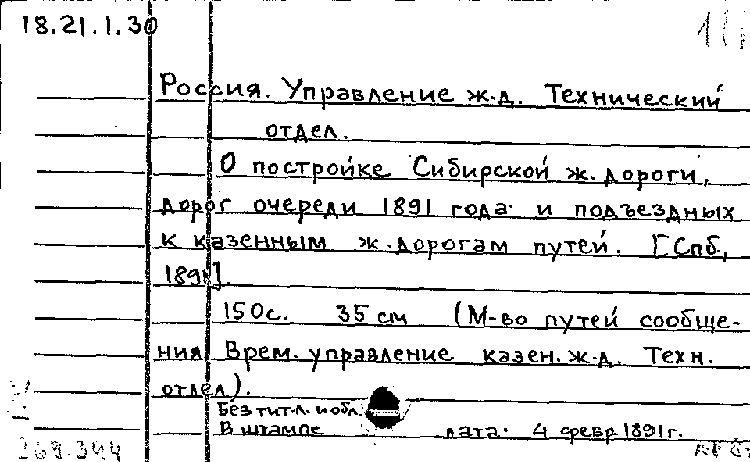 18.21.1.30
Россия. Управление ж.д. Технический
отдел.
О постройке Сибирской ж. дороги,
дорог очереди 1891 года и подъездных
к казенным ж. дорогам путей. [Спб,
1891]
150с. 35 см (М-во путей сообще-
ния Врем. управление казен. ж.д. Техн.
отдел).
Без тит. л. и обл.
В штампе дата: 4 февр 1891г.
269.344